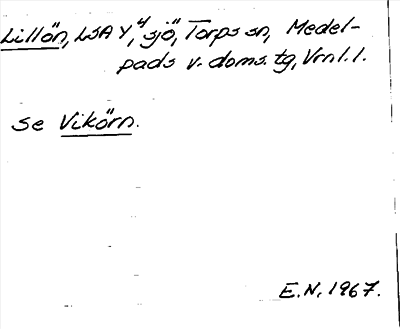 Lillön, LSA Y, 4 sjö, Torps sn, Medel-
pads v. doms. tg, Vrnl. l.
se Vikörn.
E.N. 1967.